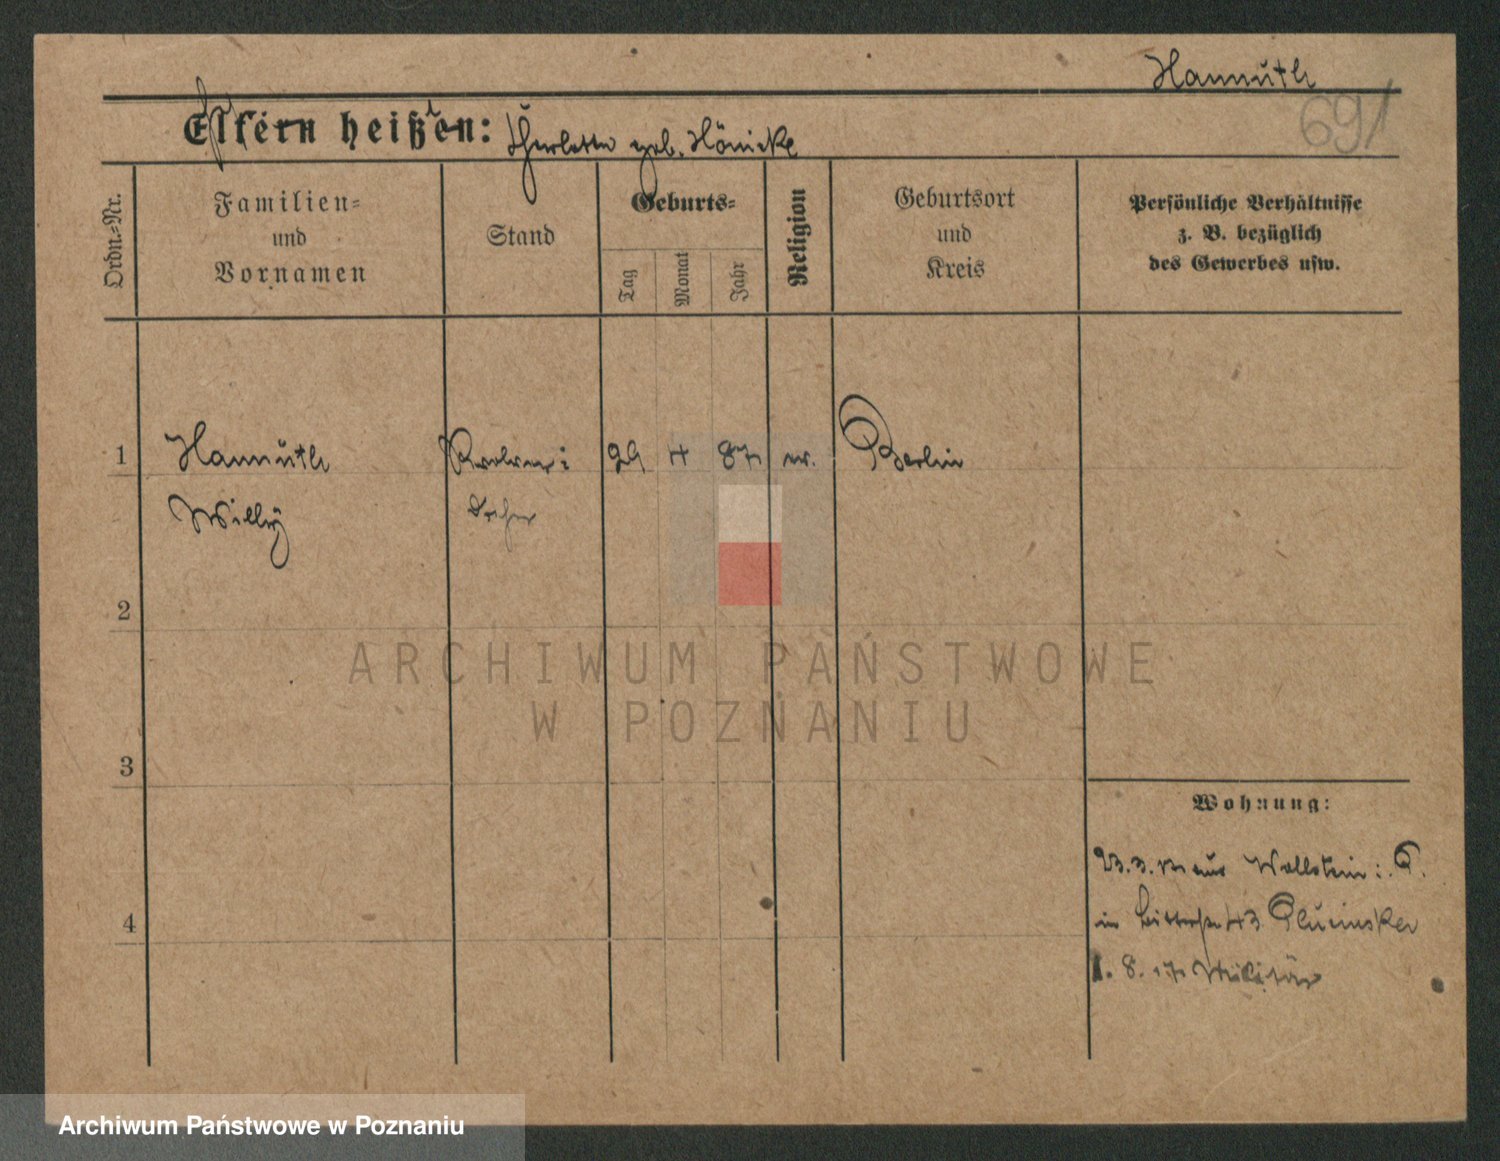 Hannuth
691
Eltern heißen: geb. Hönicke
Ordn.-Nr.
Familien-
und
Vornamen
Stand
Geburts-
Tag
Monat
Jahr
Religion
Geburtsort
und
Kreis
Persönliche Verhältnisse
z. B. bezüglich
des Gewerbes usw.
1 Hannuth 29 4 87 ev. Berlin
Willy
2
3
4
Wohnung:
23.3. aus Wollstein
in 43
1. 8. 17 Militär
ARCHIWUM PAŃSTWOWE
W POZNANIU
Archiwum Państwowe w Poznaniu